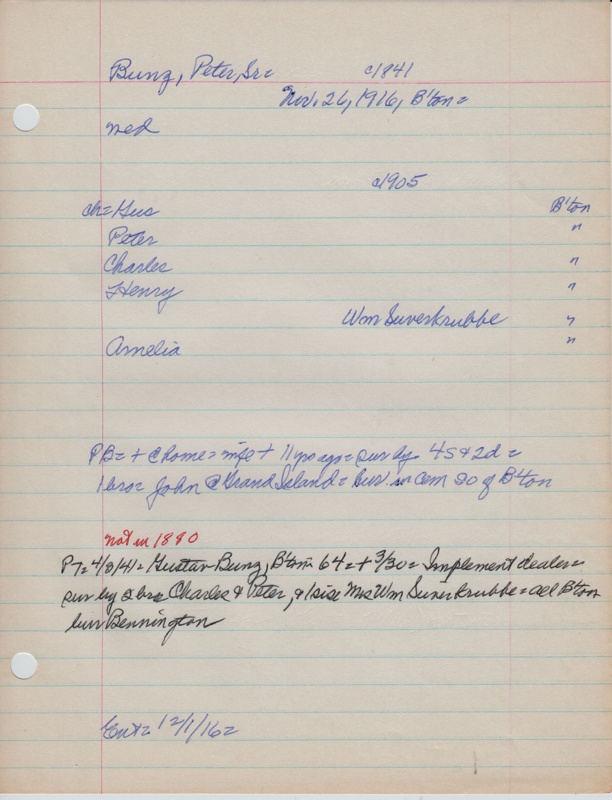 Bunz, Peter, Sr= c1841
Nov. 26, 1916, B'ton=
med
c1905
ch= Gus B'ton
Peter "
Charles "
Henry "
Wm Suverkrubbe "
Amelia "
PB= + @ home= wife + 11 yrs ago= sur by 4S & 2d=
1 bro= John @ Grand Island= bur. in cem so of B'ton
not in 1890
P7= 4/3/41= Gustav Bunz, B'ton= 64= + 3/30= Implement dealer=
sur by 2 bro Charles & Peter, & 1 sis= Mrs Wm Suverkrubbe= all B'ton
bur Bennington
Ent= 12/1/16=